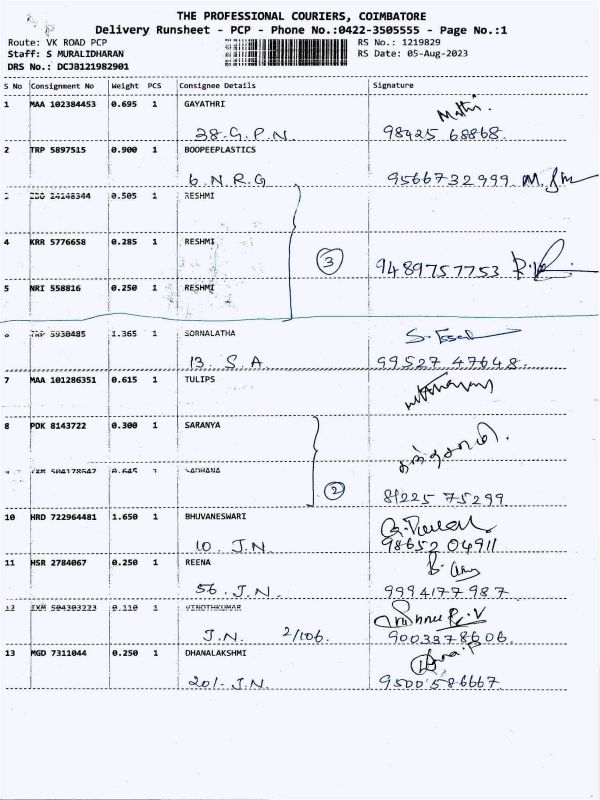 THE PROFESSIONAL COURIERS, COIMBATORE
Delivery Runsheet - PCP - Phone No.:0422-3505555 - Page No.:1
Route: VK ROAD PCP RS No.: 1219829
Staff: S MURALIDHARAN RS Date: 05-Aug-2023
DRS No.: DCJB121982901
S No Consignment No Weight PCS Consignee Details Signature
1 MAA 102384453 0.695 1 GAYATHRI
28.G.P.N. 98425 68868.
2 TRP 5897515 0.900 1 BOOPEEPLASTICS
6.N.R.G 9566732999
0.505 1 RESHMI
4 KRR 5776658 0.285 1 RESHMI
3 9489757753
5 NRI 558816 0.250 1 RESHMI
5930485 1.365 1 SORNALATHA
13. S.A 99527 47648.
7 MAA 101286351 0.615 1 TULIPS
8 PDK 8143722 0.300 1 SARANYA
0.645 1 SADHANA
2 81225 75299
10 HRD 722964481 1.650 1 BHUVANESWARI
10 J.N. 98652 04911
11 HSR 2784067 0.250 1 REENA
56. J.N. 9994177987
12 IXM 504303223 0.110 1 VINOTHKUMAR
J.N. 2/106. 9003378606.
13 MGD 7311044 0.250 1 DHANALAKSHMI
201- J.N. 9500586667.